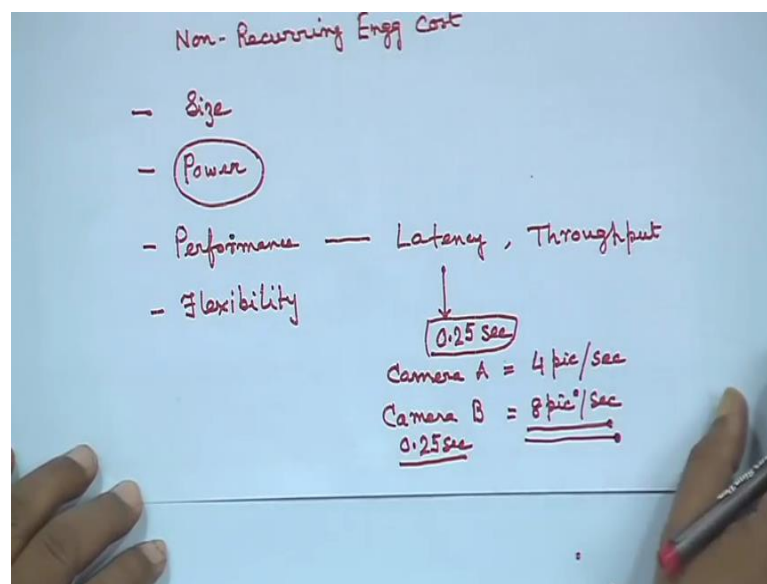 Non-Recurring Engg Cost
- Size
- Power
- Performance — Latency, Throughput
- Flexibility
0.25 sec
Camera A = 4 pic/sec
Camera B = 8 pic/sec
0.25 sec